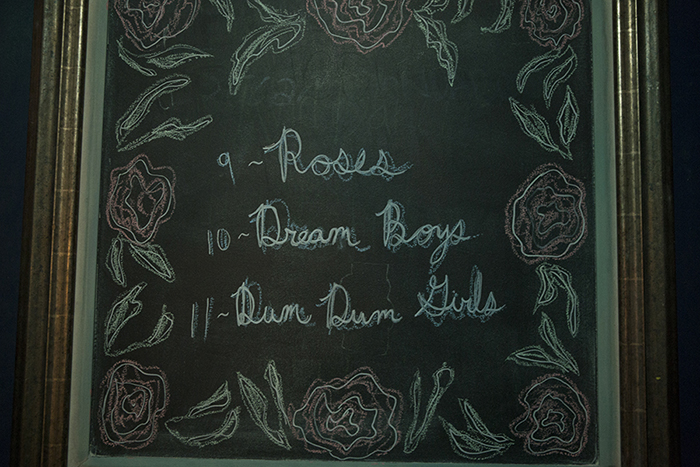 9 ~ Roses
10 ~ Dream Boys
11 ~ Dum Dum Girls